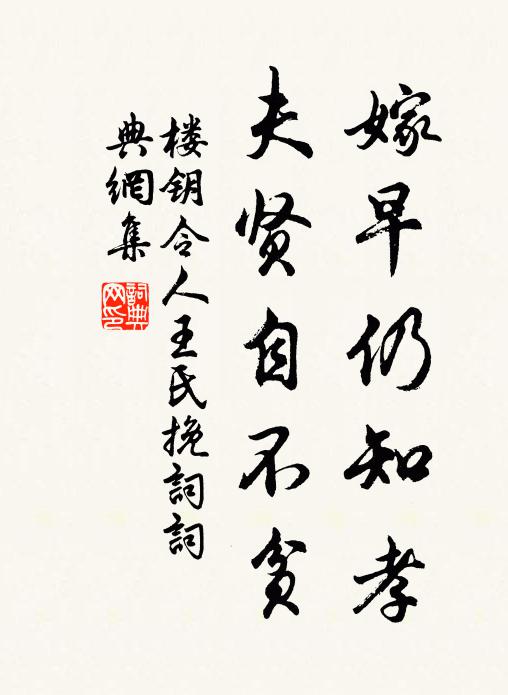 嫁早仍知孝
夫贤自不贫
楼钥令人王氏挽詞詞
典網集
詞典网印